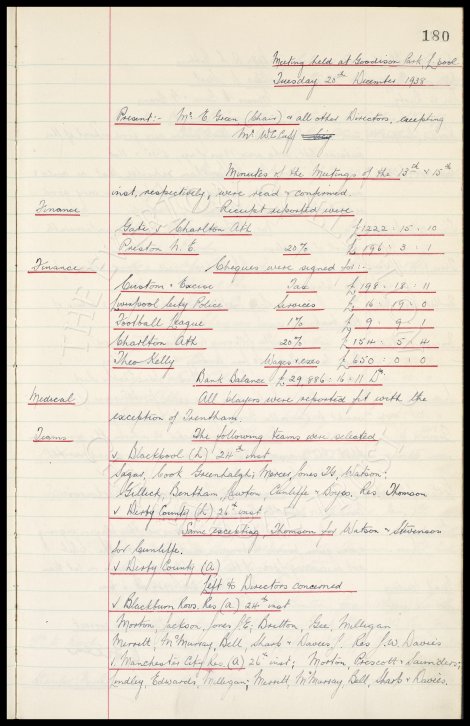 180
Meeting held at Goodison Park, L'pool
Tuesday 20th December 1938
Present:- Mr. E. Green (Chair) & all other Directors, excepting
Mr. W.C. Cuff
Minutes of the Meetings of the 13th & 15th
inst, respectively, were read & confirmed.
Finance
Receipts reported were
Gate v Charlton Ath £1222 : 15 : 10
Preston N. E. 20% £196 : 3 : 1
Finance
Cheques were signed for :-
Custom & Excise Tax £198 : 18 : 11
Liverpool City Police Services £16 : 19 : 0
Football League 1% £9 : 9 : 1
Charlton Ath 20% £154 : 5 : 4
Theo Kelly Wages & exes £650 : 0 : 0
Bank Balance £29,886 : 16 : 11 Dr.
Medical
All players were reported fit with the
exception of Trentham.
Teams
The following teams were selected
v Blackpool (h) 24th inst
Sagar, Cook Greenhalgh; Mercer, Jones TG, Watson;
Gillick, Bentham, Lawton, Cunliffe & Boyes, Res. Thomson
v Derby County (h) 26th inst
Same excepting Thomson for Watson & Stevenson
for Cunliffe.
v Derby County (a)
Left to Directors concerned
v Blackburn Rovs. Res (a) 24th inst
Morton, Jackson, Jones J.E; Britton, Gee, Milligan
Merritt, McMurray, Bell, Sharp & Davies J. Res J.W. Davies
v. Manchester City Res. (a) 26th inst; Morton, Prescott & Saunders;
Lindley, Edwards, Milligan; Merritt, McMurray, Bell, Sharp & Davies.